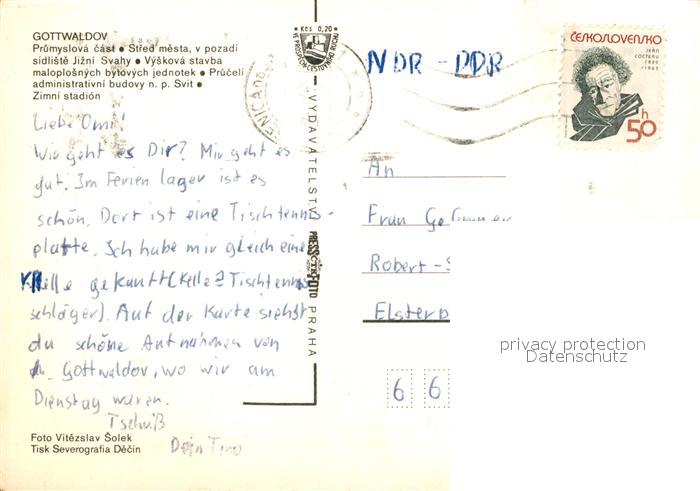 GOTTWALDOV
Průmyslová část ● Střed města, v pozadí
sídliště Jižní Svahy ● Výšková stavba
maloplošných bytových jednotek ● Průčelí
administrativní budovy n. p. Svit ●
Zimní stadión
Liebe Omi!
Wir geht es Dir? Mir geht es
gut. Im Ferien lager ist es
schön. Dort ist eine Tischtennis-
platte. Ich habe mir gleich eine
Kelle gekauft (Kelle ≙ Tischtennis
schläger). Auf der Karte siehst
du schöne Aufnahmen von
Gottwaldov, wo wir am
Dienstag waren.
Tschüß
Dein Tino
Foto Vítězslav Šolek
Tisk Severografia Děčín
Kčs 0,20
VYDAVATELSTVÍ PRESSFOTO PRAHA
ČTK
NDR - DDR
ČESKOSLOVENSKO
JEAN
COCTEAU
1889
1963
50 h
An
Frau
Robert-S
Elsterb
6 6
privacy protection
Datenschutz